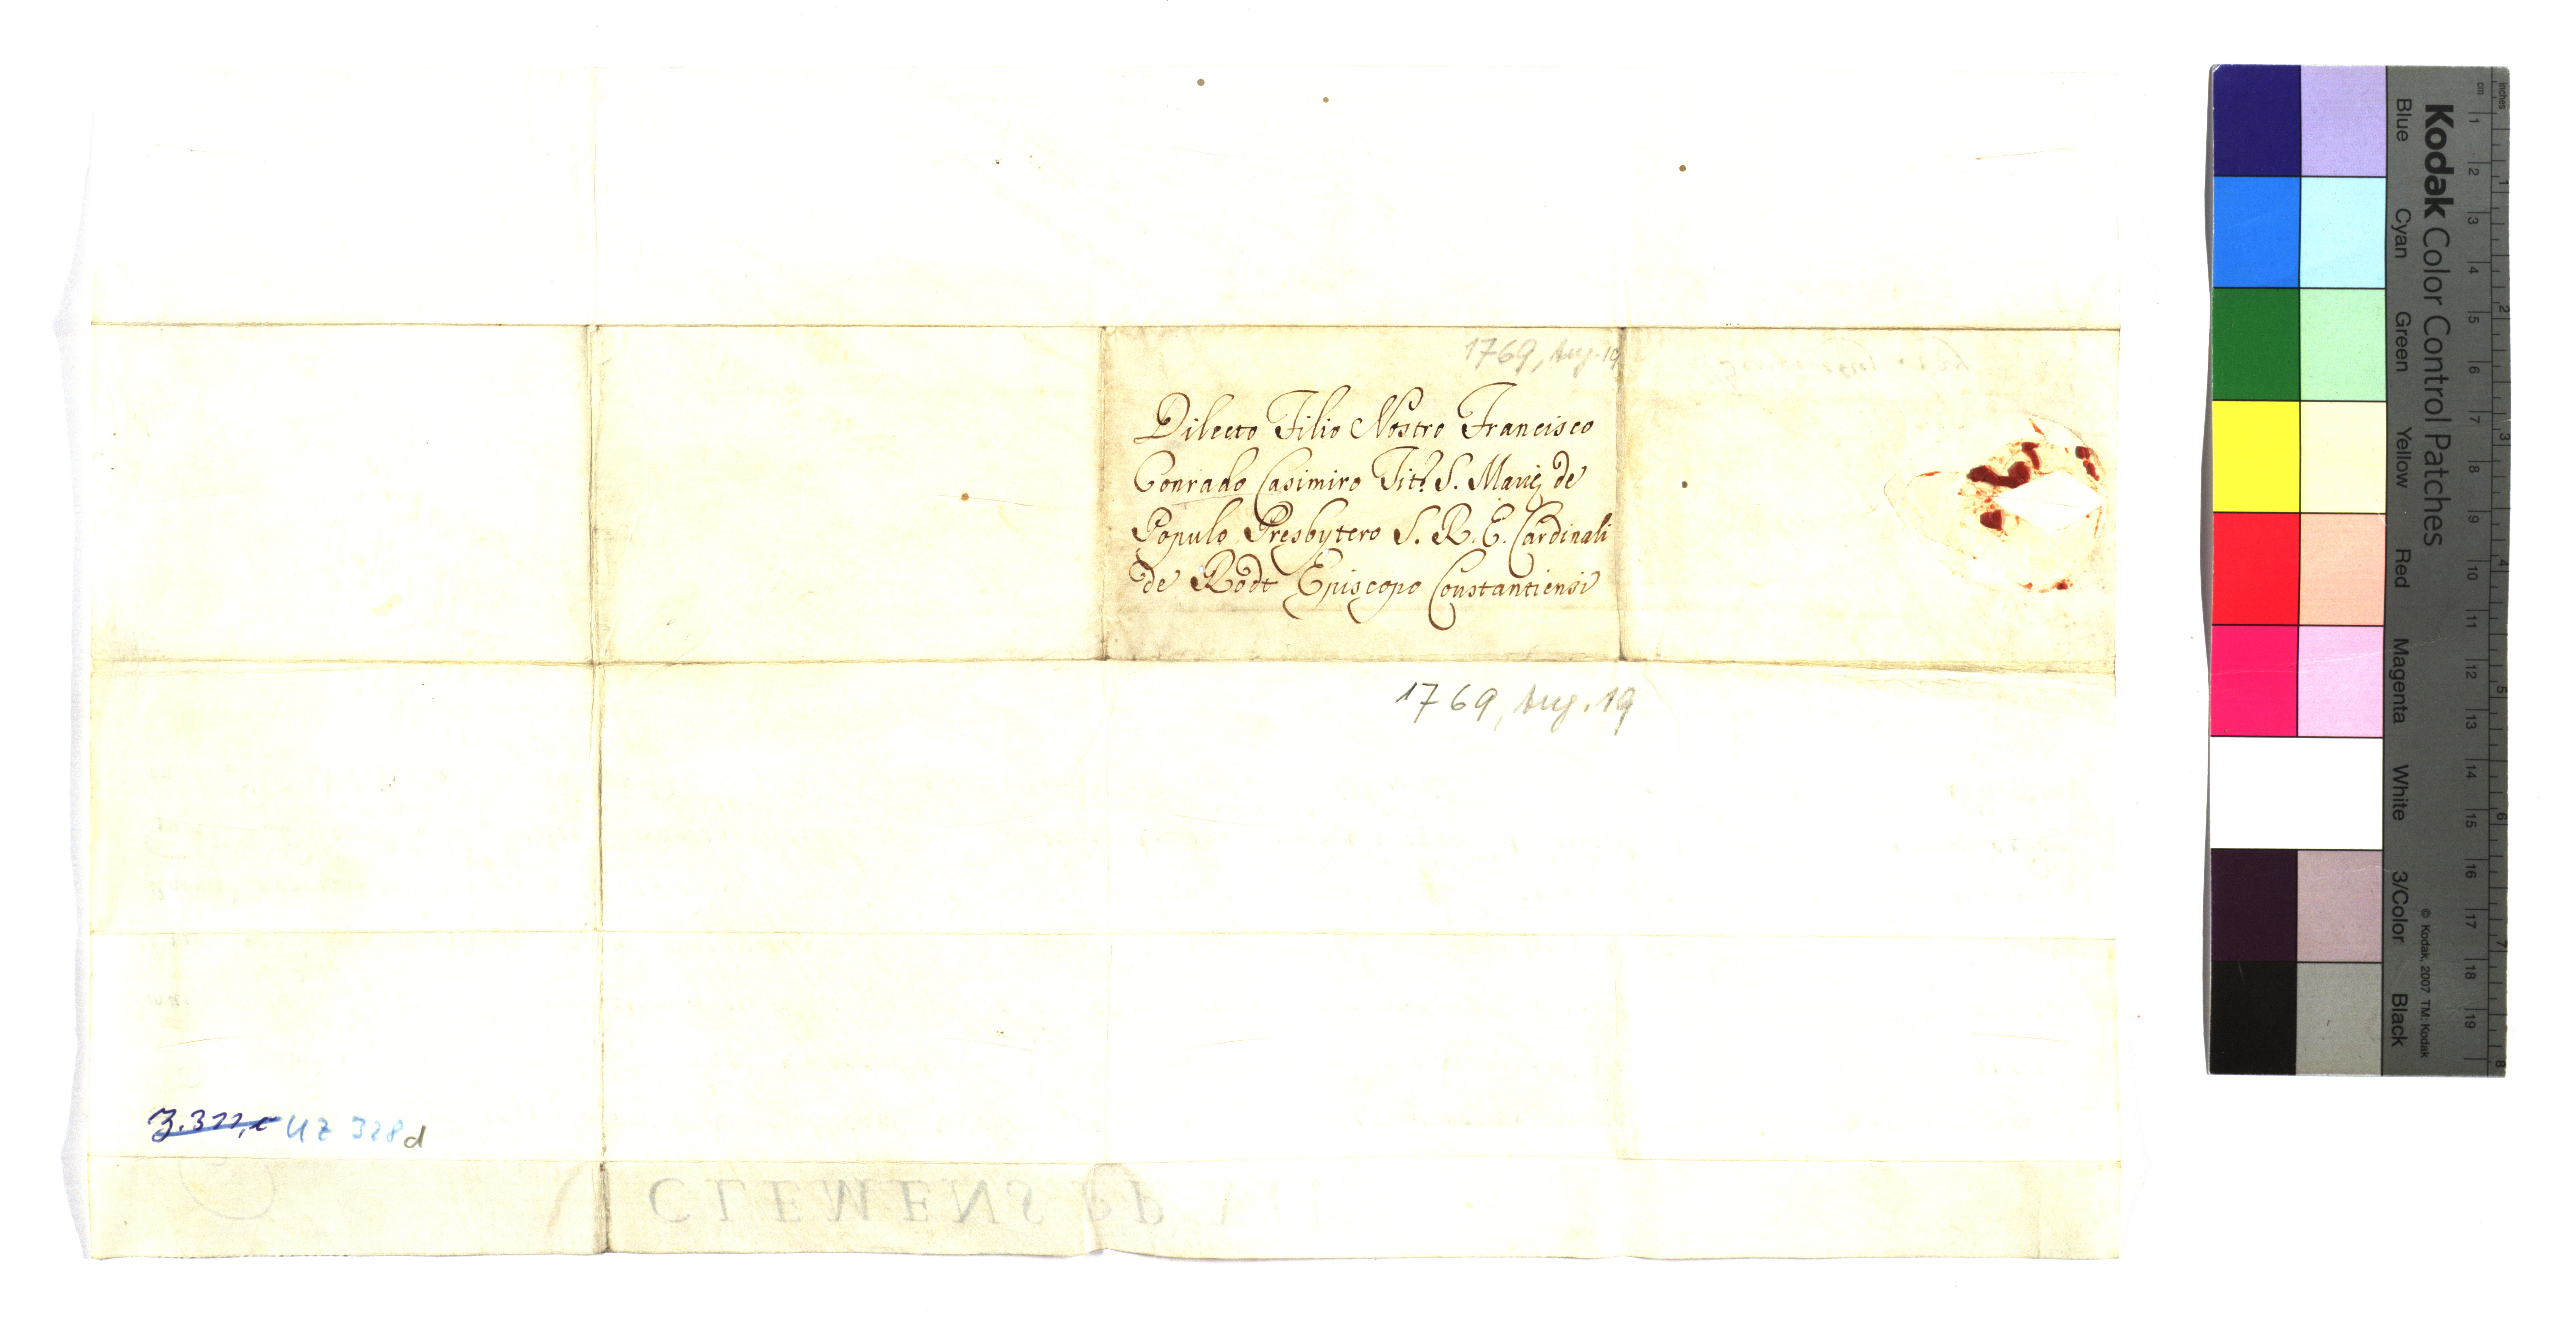 1769, Aug. 19
Dilecto Filio Nostro Francisco
Conrado Casimiro Tit. S. Marię de
Populo Presbytero S. R. E. Cardinali
de Rodt Episcopo Constantiensi
1769, Aug. 19
Z. 322, c UZ 328 d
CLEMENS PP
Kodak Color Control Patches
Blue Cyan Green Yellow Red Magenta White 3/Color Black
© Kodak, 2007 TM: Kodak
cm 1 2 3 4 5 6 7 8 9 10 11 12 13 14 15 16 17 18 19
inches 1 2 3 4 5 6 7 8